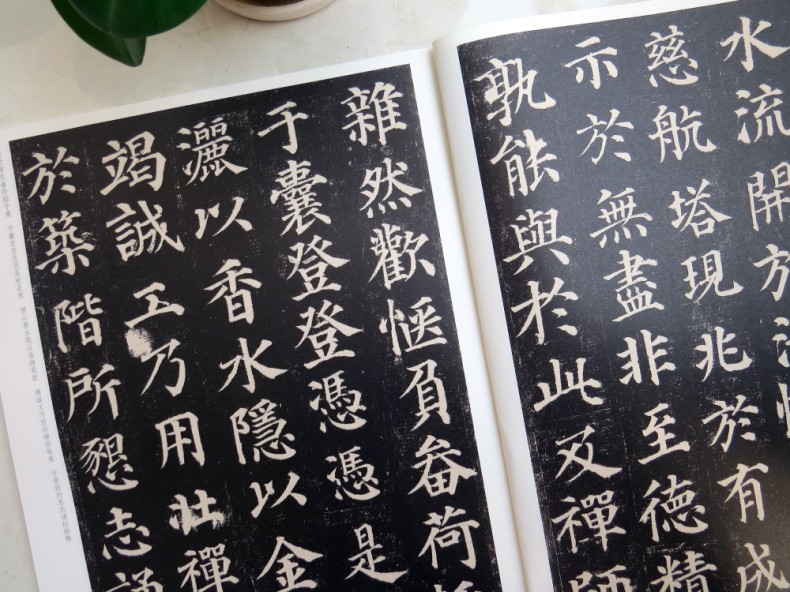 水流開於法
慈航塔現兆於有成
示於無盡非至德精
孰能與於此及禪師
雜然歡愜負畚荷
于囊登登憑憑是
灑以香水隱以金
竭誠工乃用壯禪
於築階所懇志誦